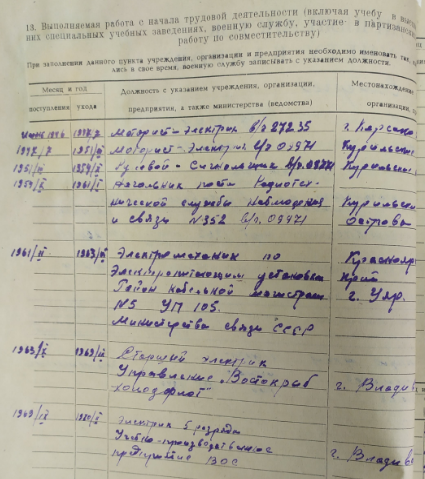 13. Выполняемая работа с начала трудовой деятельности (включая учебу в
них специальных учебных заведениях, военную службу, участие в партизанс
работу по совместительству)
При заполнении данного пункта учреждения, организации и предприятия необходимо именовать так,
лись в свое время, военную службу записывать с указанием должности.
Месяц и год
Должность с указанием учреждения, организации,
предприятия, а также министерства (ведомства)
Местонахожд
организации,
поступления ухода
Моторист-Электрик в/ч 27235
Моторист-Электрик в/ч 09971 Курильские
1951/ Рулевой-Сигнальщик в/ч 09971 Курильские
1961/ Начальник поста Радиотех-
нической службы наблюдения Курильские
и связи N352 в/ч 09971 острова
1961/ 1963/ Электромеханик по Краснояр
Электропитающим установкам край
Район кабельной магистрали г. Уяр.
N5 УП 105.
Министерства связи СССР
1963/ 1969/ Старший электрик
Управление "Востокрыб
холодфлот" г. Владив
1969/ Электрик 5 разряда
Учебно-производственное
предприятие ВОС г. Владив